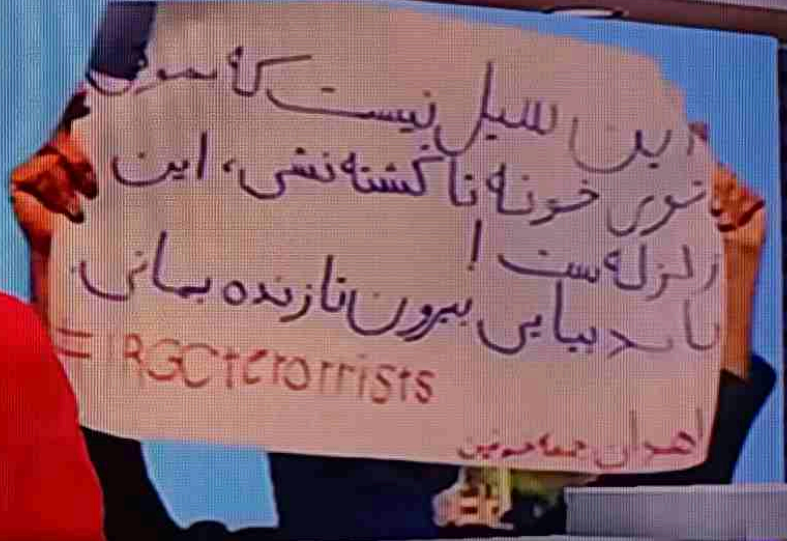 این سیل نیست که بمونی
توی خونه تا کشته نشی، این
زلزله ست!
باید بیایی بیرون تا زنده بمانی.
#IRGCterorrists
اهواز جمعه خونین